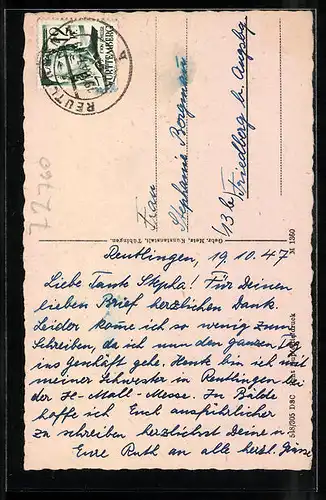 12
WÜRTTEMBERG
REUTL
A
72760
Frau
Stephanie Bergmann
(13b) Friedberg b. Augsbg
Gebr. Metz, Kunstanstalt, Tübingen.
M 1350
Reutlingen, 19.10.47
Liebe Tante Stepha! Für Deinen
lieben Brief herzlichen Dank.
Leider komme ich so wenig zum
Schreiben, da ich nun den ganzen Tag
ins Geschäft gehe. Heute bin ich mit
meiner Schwester in Reutlingen bei
der Messe. In Bälde
hoffe ich Euch ausführlicher
zu schreiben herzlichst Deine u
Eure Ruth an alle herzl. Grüsse